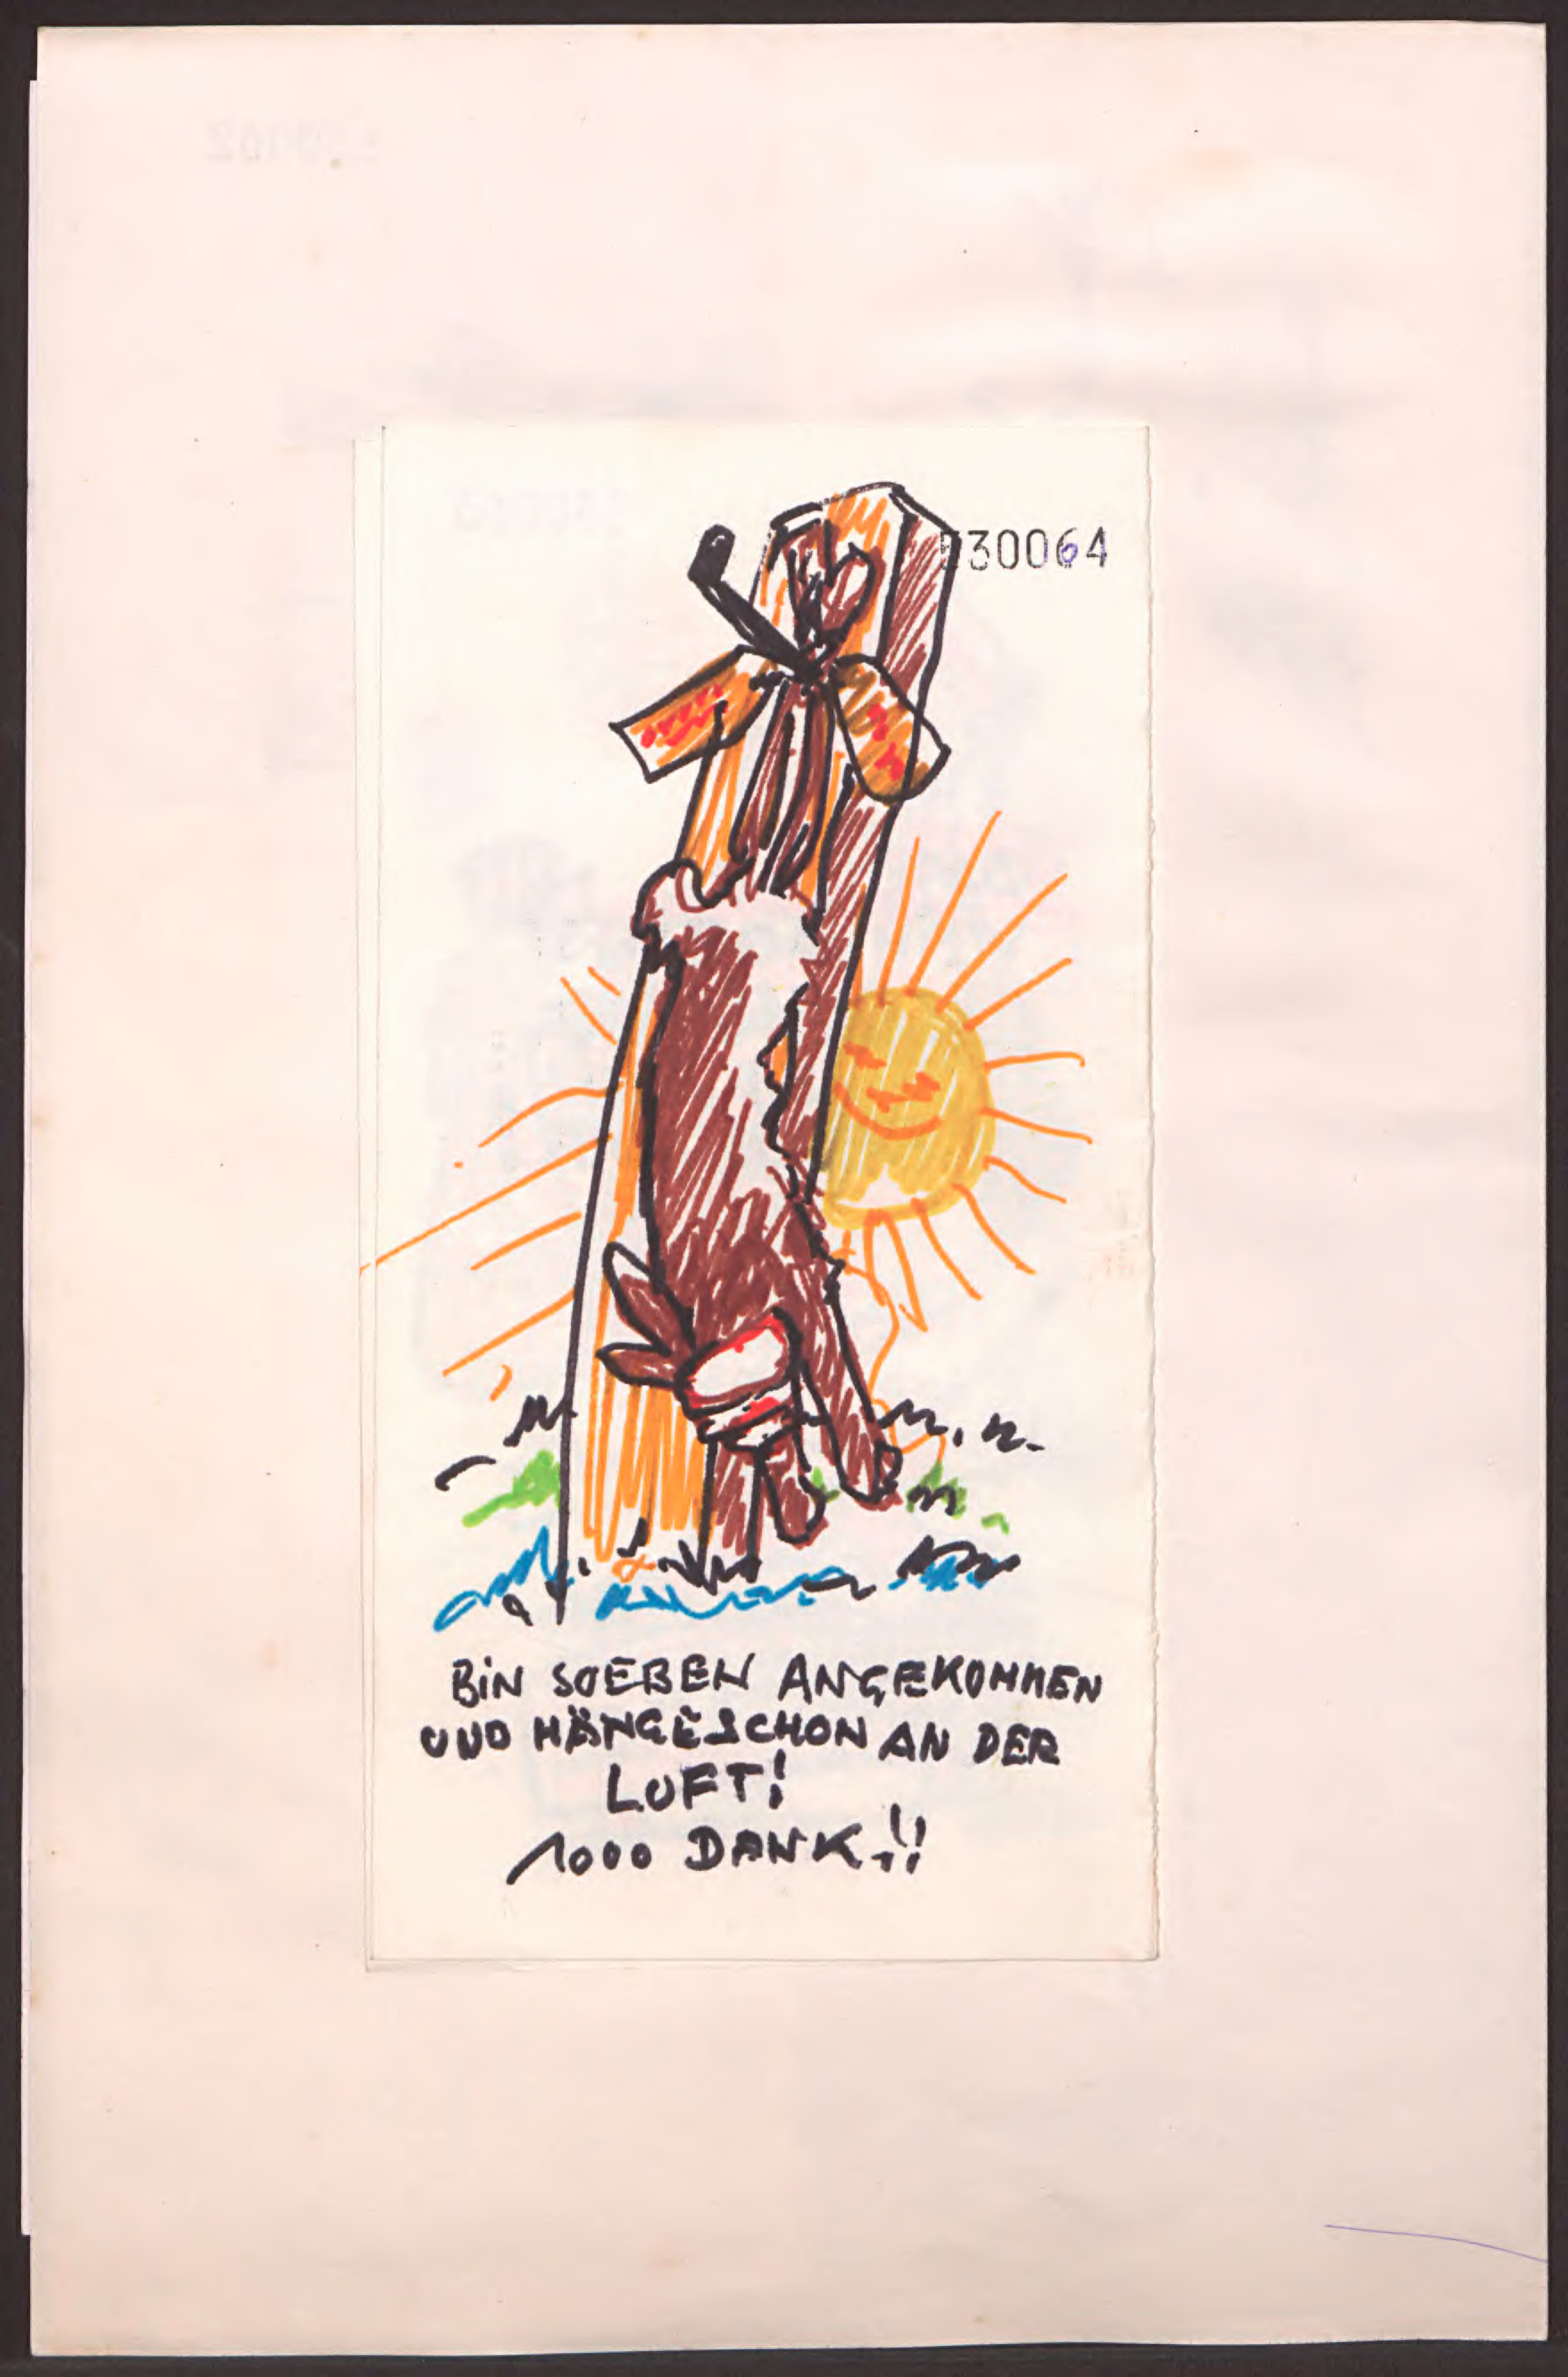 530064
BiN SOEBEN ANGEKOMMEN
UND HÄNGE SCHON AN DER
LUFT!
1000 DANK!!